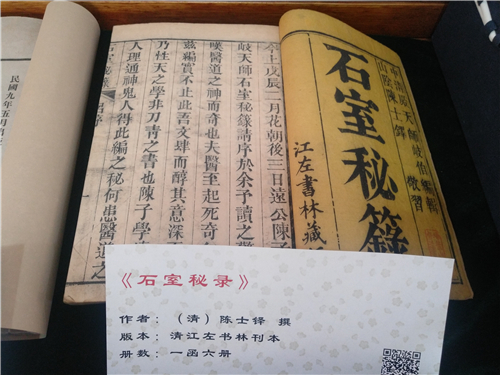 山陰陳士鐸敬習
石室秘籙
江左書林藏
今上戊辰二月花朝後三日遠公陳子
岐天師石室秘籙請序於余予讀之
嘆醫道之神而奇也夫醫至起死奇
茲編實不止此吾文肆而醇其意深
乃性天之學非刀圭之書也陳子學
人理通神鬼人得此編之秘何患醫道之
民國九年五月
《石室秘录》
作者：（清）陈士铎 撰
版本：清江左书林刊本
册数：一函六册